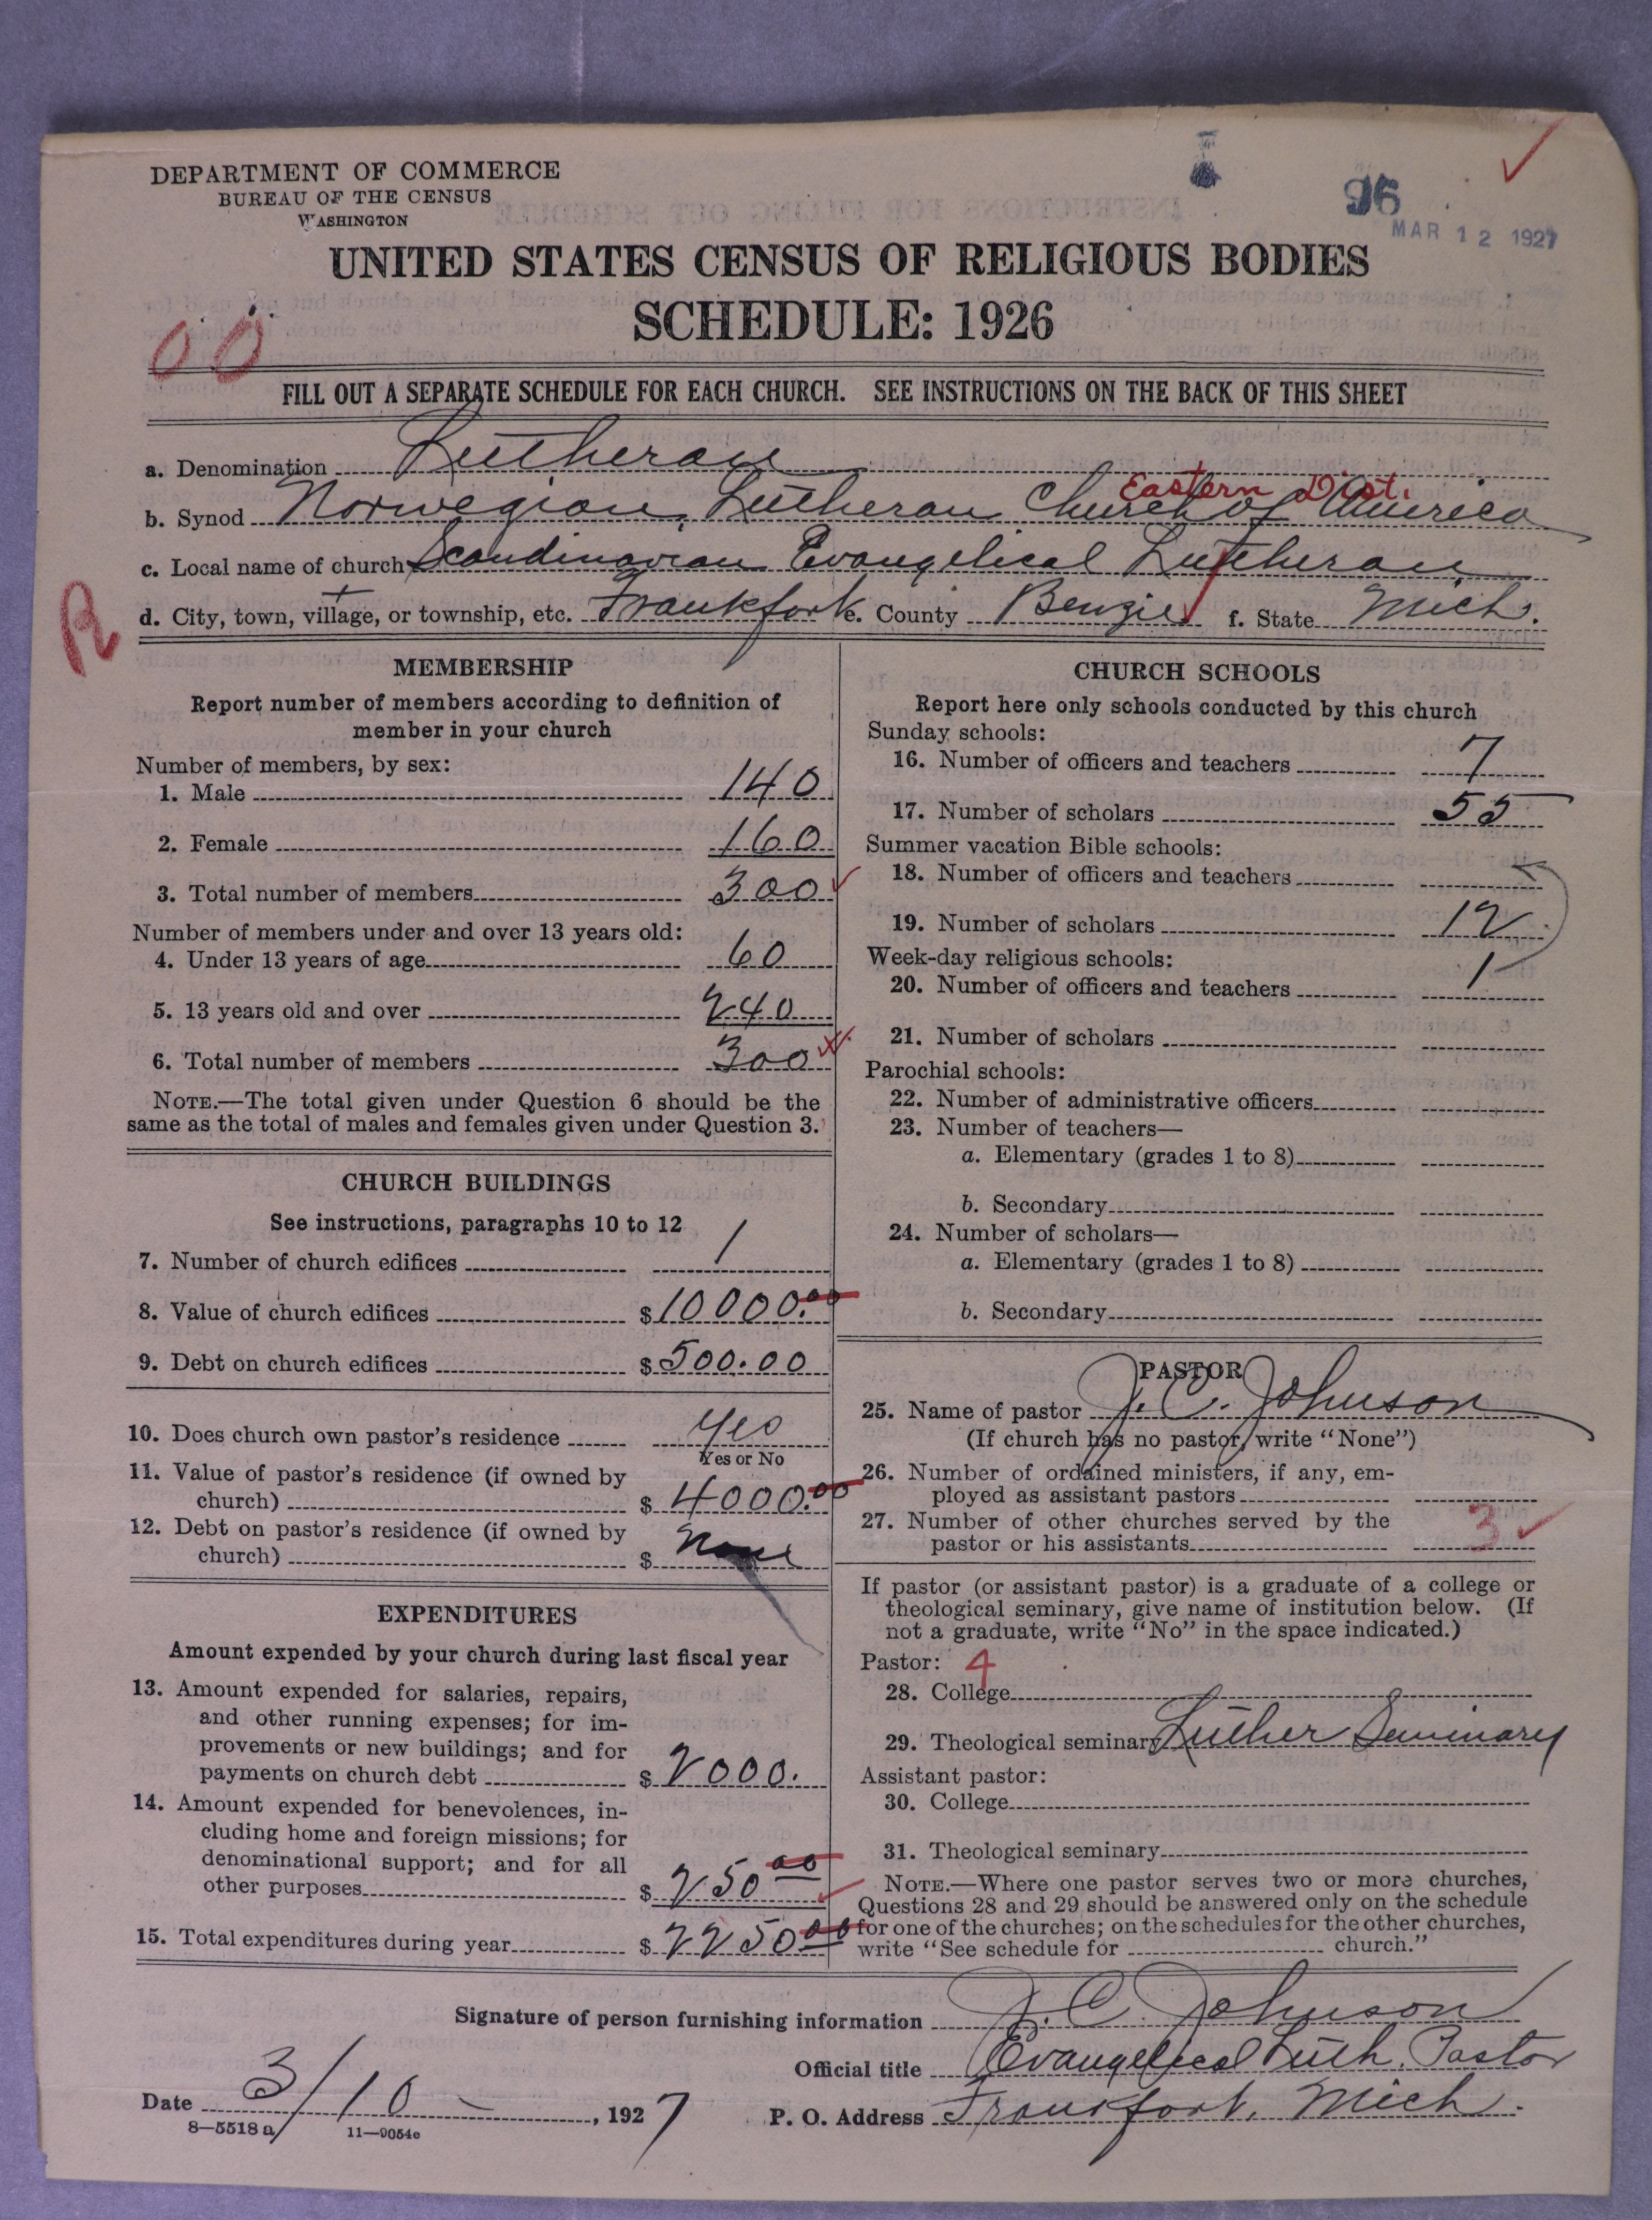 DEPARTMENT OF COMMERCE
BUREAU OF THE CENSUS
WASHINGTON
96
MAR 12 1927
UNITED STATES CENSUS OF RELIGIOUS BODIES
SCHEDULE: 1926
00
FILL OUT A SEPARATE SCHEDULE FOR EACH CHURCH. SEE INSTRUCTIONS ON THE BACK OF THIS SHEET
a. Denomination Lutheran
Eastern Dist.
b. Synod Norwegian Lutheran Church of America
c. Local name of church Scandinavian Evangelical Lutheran
R
d. City, town, village, or township, etc. Frankfort e. County Benzie f. State Mich.
MEMBERSHIP
Report number of members according to definition of
member in your church
Number of members, by sex:
1. Male 140
2. Female 160
3. Total number of members 300
Number of members under and over 13 years old:
4. Under 13 years of age 60
5. 13 years old and over 240
6. Total number of members 300
NOTE.—The total given under Question 6 should be the
same as the total of males and females given under Question 3.
CHURCH BUILDINGS
See instructions, paragraphs 10 to 12
7. Number of church edifices 1
8. Value of church edifices $10000.00
9. Debt on church edifices $500.00
10. Does church own pastor's residence Yes
Yes or No
11. Value of pastor's residence (if owned by
church) $4000.00
12. Debt on pastor's residence (if owned by
church) $ None
EXPENDITURES
Amount expended by your church during last fiscal year
13. Amount expended for salaries, repairs,
and other running expenses; for im-
provements or new buildings; and for
payments on church debt $2000.
14. Amount expended for benevolences, in-
cluding home and foreign missions; for
denominational support; and for all
other purposes $250 00
15. Total expenditures during year $2250 00
CHURCH SCHOOLS
Report here only schools conducted by this church
Sunday schools:
16. Number of officers and teachers 7
17. Number of scholars 55
Summer vacation Bible schools:
18. Number of officers and teachers
19. Number of scholars 12
Week-day religious schools:
20. Number of officers and teachers 1
21. Number of scholars
Parochial schools:
22. Number of administrative officers
23. Number of teachers—
a. Elementary (grades 1 to 8)
b. Secondary
24. Number of scholars—
a. Elementary (grades 1 to 8)
b. Secondary
PASTOR
25. Name of pastor J. C. Johnson
(If church has no pastor, write "None")
26. Number of ordained ministers, if any, em-
ployed as assistant pastors
27. Number of other churches served by the
pastor or his assistants 3
If pastor (or assistant pastor) is a graduate of a college or
theological seminary, give name of institution below. (If
not a graduate, write "No" in the space indicated.)
Pastor: 4
28. College
29. Theological seminary Luther Seminary
Assistant pastor:
30. College
31. Theological seminary
NOTE.—Where one pastor serves two or more churches,
Questions 28 and 29 should be answered only on the schedule
for one of the churches; on the schedules for the other churches,
write "See schedule for church."
Signature of person furnishing information J. C. Johnson
Official title Evangelical Luth. Pastor
Date 3/10 , 1927 P. O. Address Frankfort, Mich.
8—5518a 11—9054c